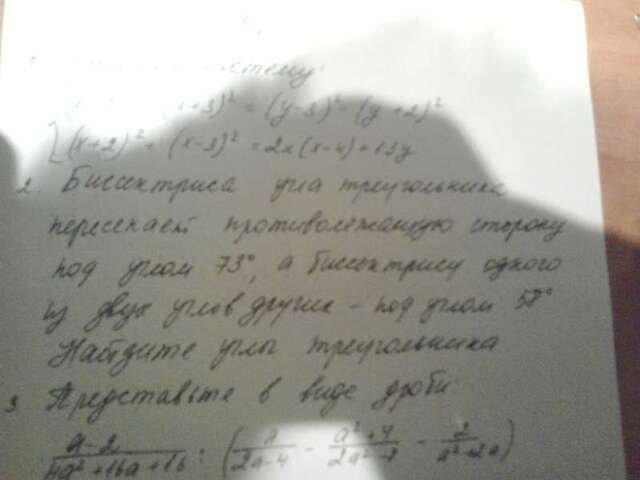 систему:
+3)² = (y-3)² - (y+2)²
(x+2)² + (x-3)² = 2x(x-4)+13y
2. Биссектриса угла треугольника
пересекает противолежащую сторону
под углом 73°, а биссектрису одного
из двух углов других - под углом
Найдите углы треугольника
3 Представьте в виде дроби
a-2/4a²+16a+16 : (a/2a-4 - a²+4/2a²-8 - 2/a²-2a)